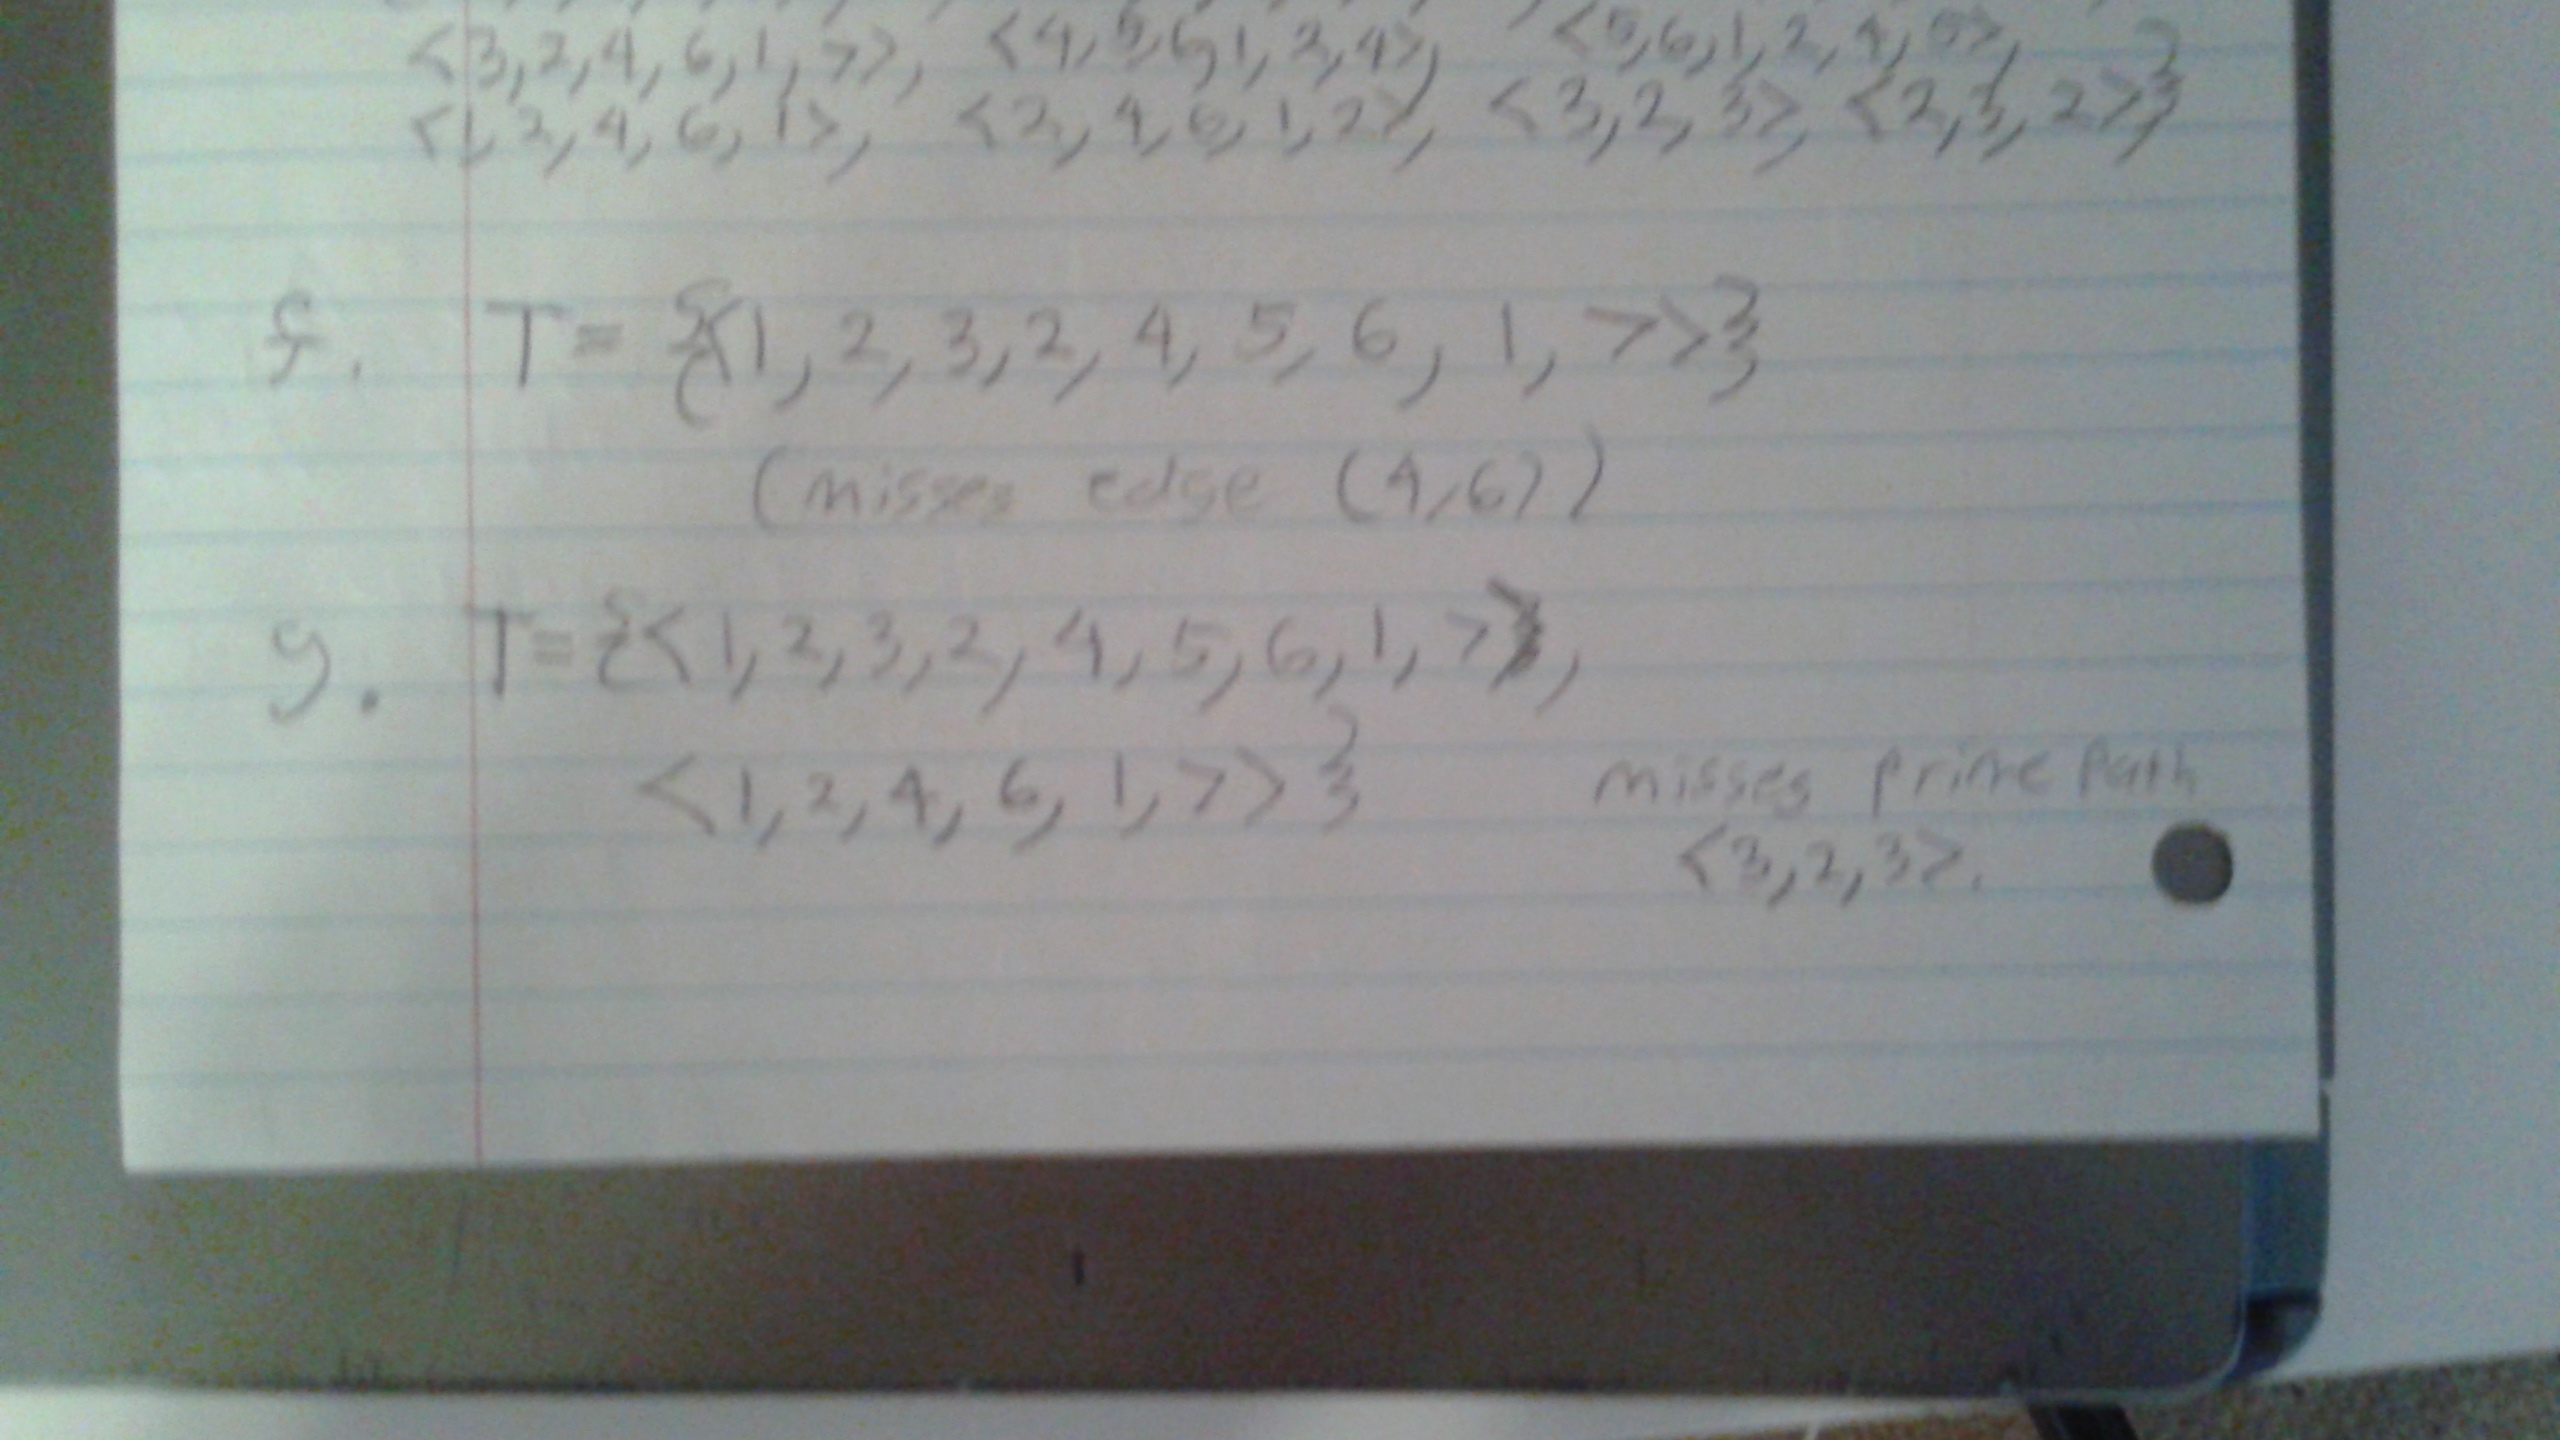 <3,2,4,6,1,7>, <4,5,6,1,2,4>, <5,6,1,2,4,5>,
<1,2,4,6,1>, <2,4,6,1,2>, <3,2,3>, <2,3,2>}
f. T = {<1,2,3,2,4,5,6,1,7>}
(misses edge (4,6))
g. T = {<1,2,3,2,4,5,6,1,7>,
<1,2,4,6,1,7>} misses prime path
<3,2,3>.